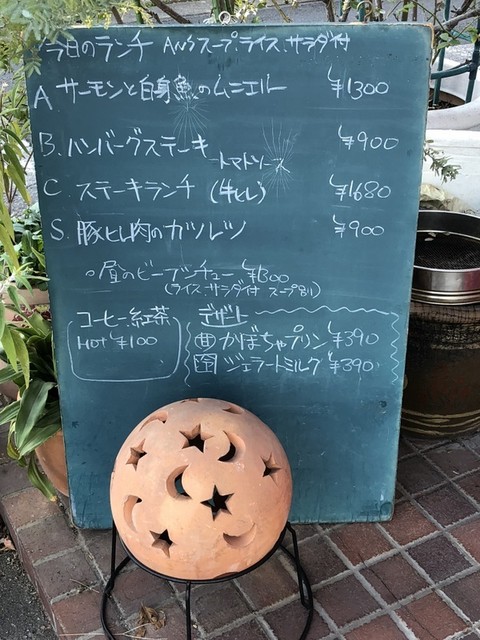 今日のランチ A〜S スープ ライス、サラダ付
A サーモンと白身魚のムニエル ¥1300
B. ハンバーグステーキ トマトソース ¥900
C ステーキランチ (牛ヒレ) ¥1680
S. 豚ヒレ肉のカツレツ ¥900
○昼のビーフシチュー ¥1300
(ライス、サラダ付 スープ別)
コーヒー、紅茶
HOT ¥100
デザート
かぼちゃプリン ¥390
ジェラートミルク ¥390